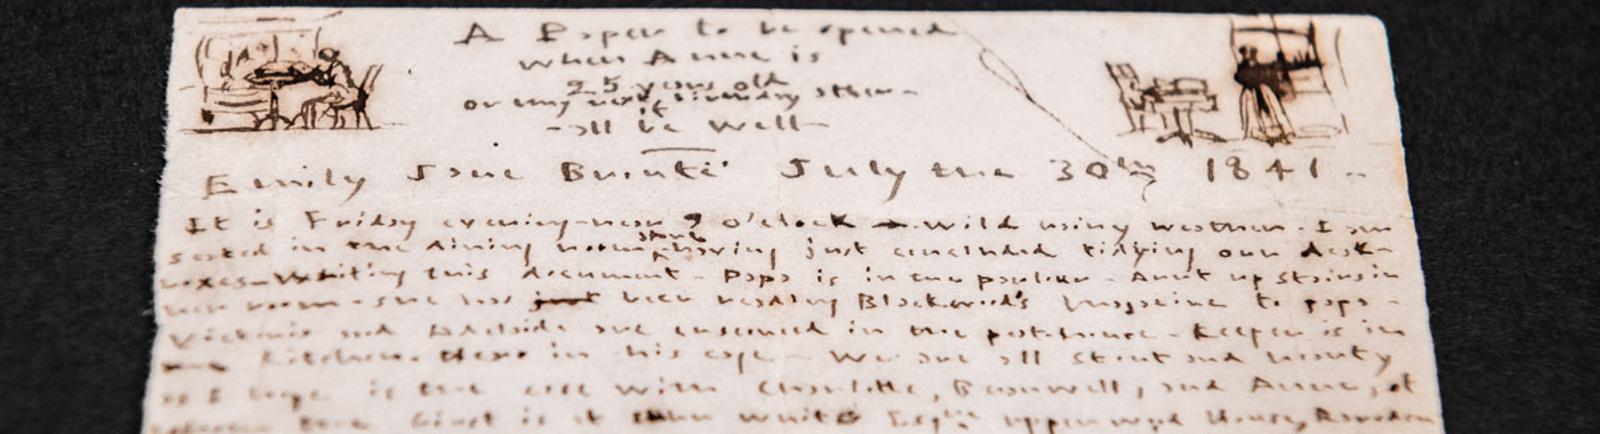 A Paper to be opened
when Anne is
25 years old
or my next birthday after -
if
- all be well -
Emily Jane Brontë July the 30th 1841 . -
It is Friday evening - near 9 o'clock - wild rainy weather - I am
seated in the dining room alone - having just concluded tidying our desk-
boxes - writing this document - Papa is in the parlour - Aunt up stairs in
her room - she has just been reading Blackwood's Magazine to papa -
Victoria and Adelaide are ensconced in the peat-house - Keeper is in
the Kitchen - Hero in his cage - We are all stout and hearty
as I hope is the case with Charlotte, Branwell, and Anne, of
whom the first is at John White Esqre upperwood House, Rawdon